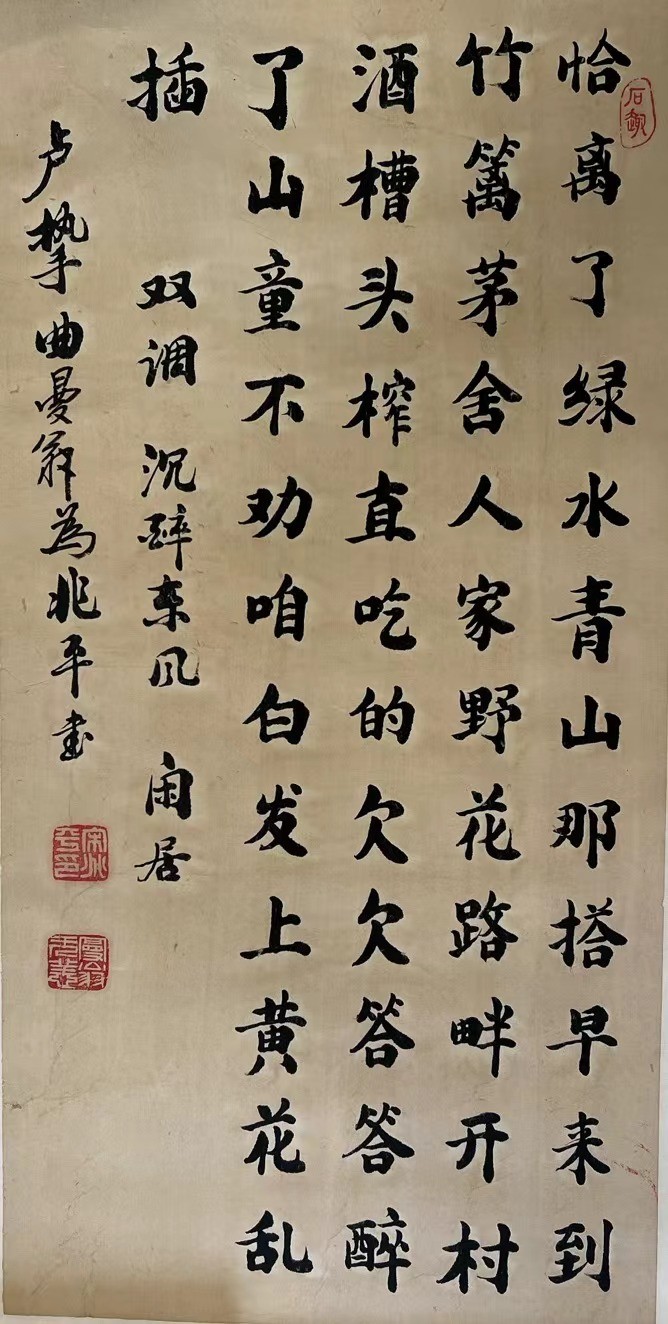 恰离了绿水青山那搭早来到
竹篱茅舍人家野花路畔开村
酒槽头榨直吃的欠欠答答醉
了山童不劝咱白发上黄花乱
插
双调 沉醉东风 闲居
卢挚曲曼翁为兆平书
石趣